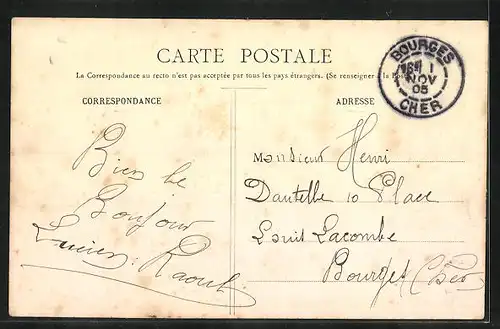 CARTE POSTALE
La Correspondance au recto n'est pas acceptée par tous les pays étrangers. (Se renseigner à la Poste)
CORRESPONDANCE
ADRESSE
BOURGES
1
NOV
05
CHER
Bien le
Bonjour
Lucien Raoul
Monsieur Henri
10 Place
Louis Lacombe
Bourges (Cher)